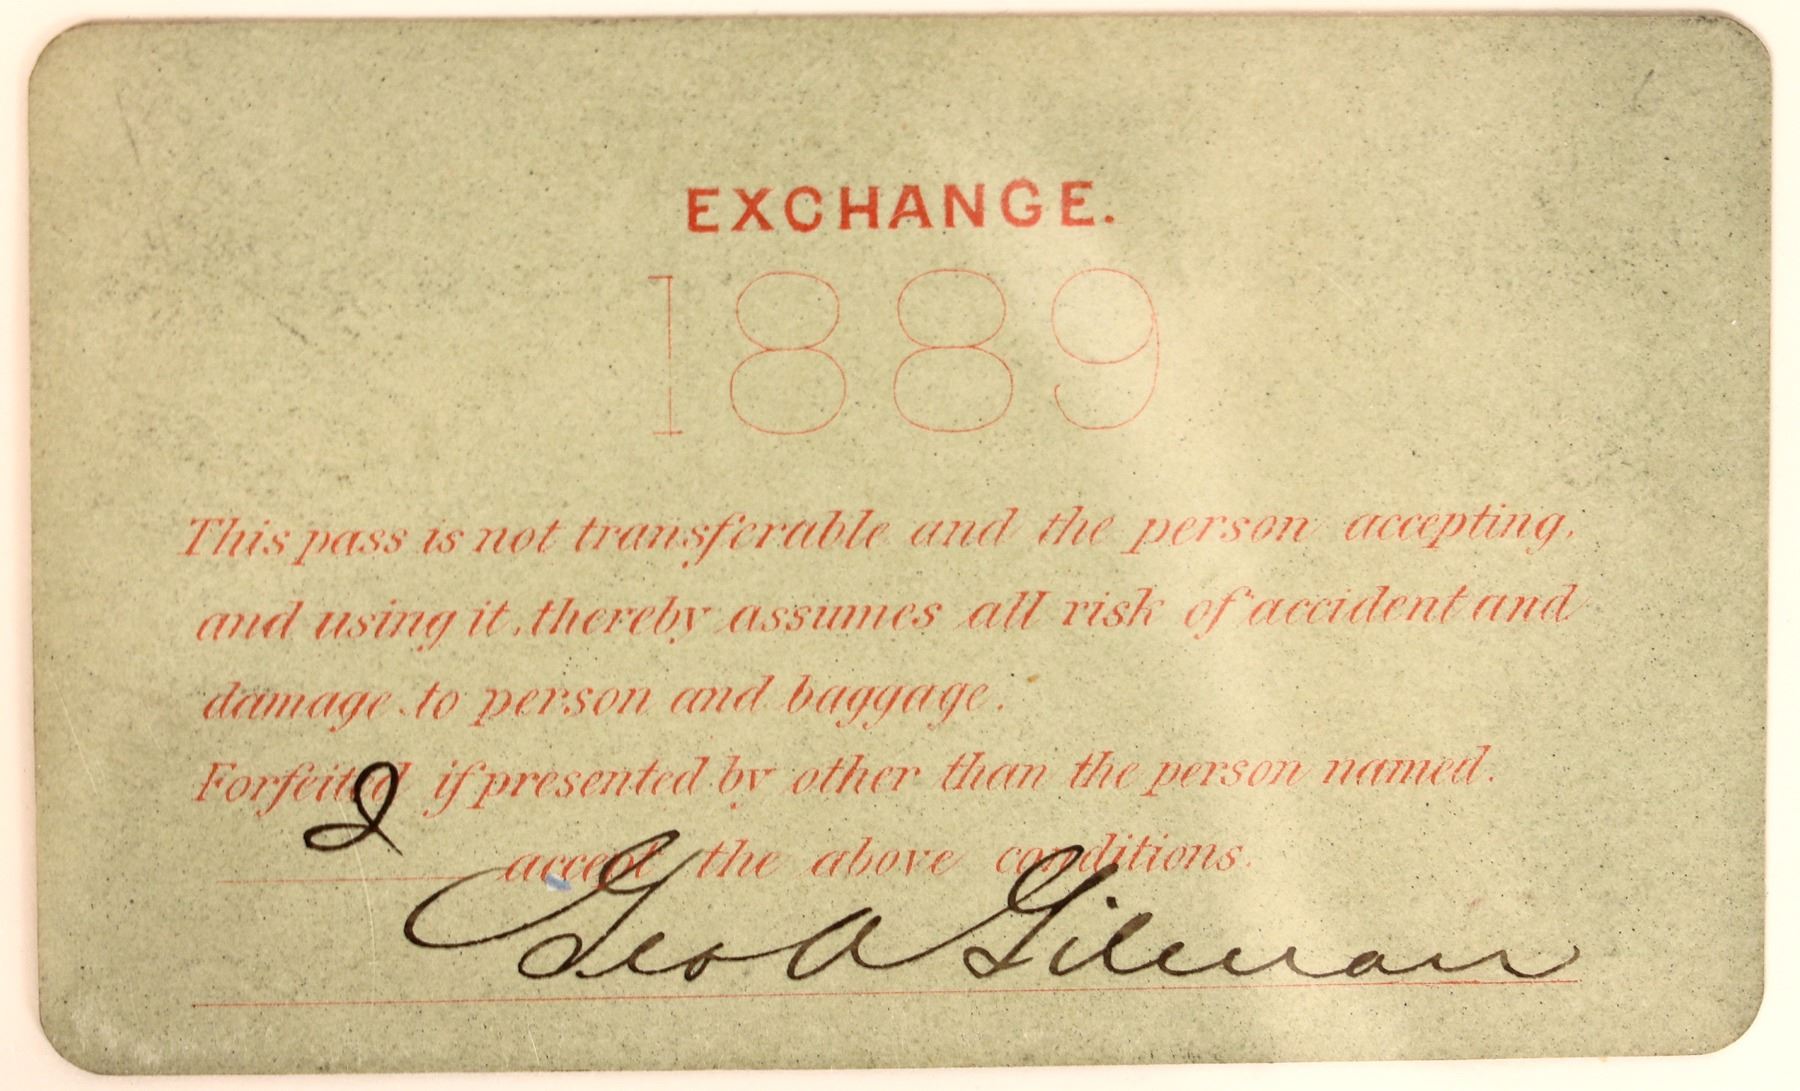 EXCHANGE.
1889
This pass is not transferable and the person accepting,
and using it, thereby assumes all risk of accident and
damage to person and baggage.
Forfeited if presented by other than the person named.
I accept the above conditions.
Geo A Gilman